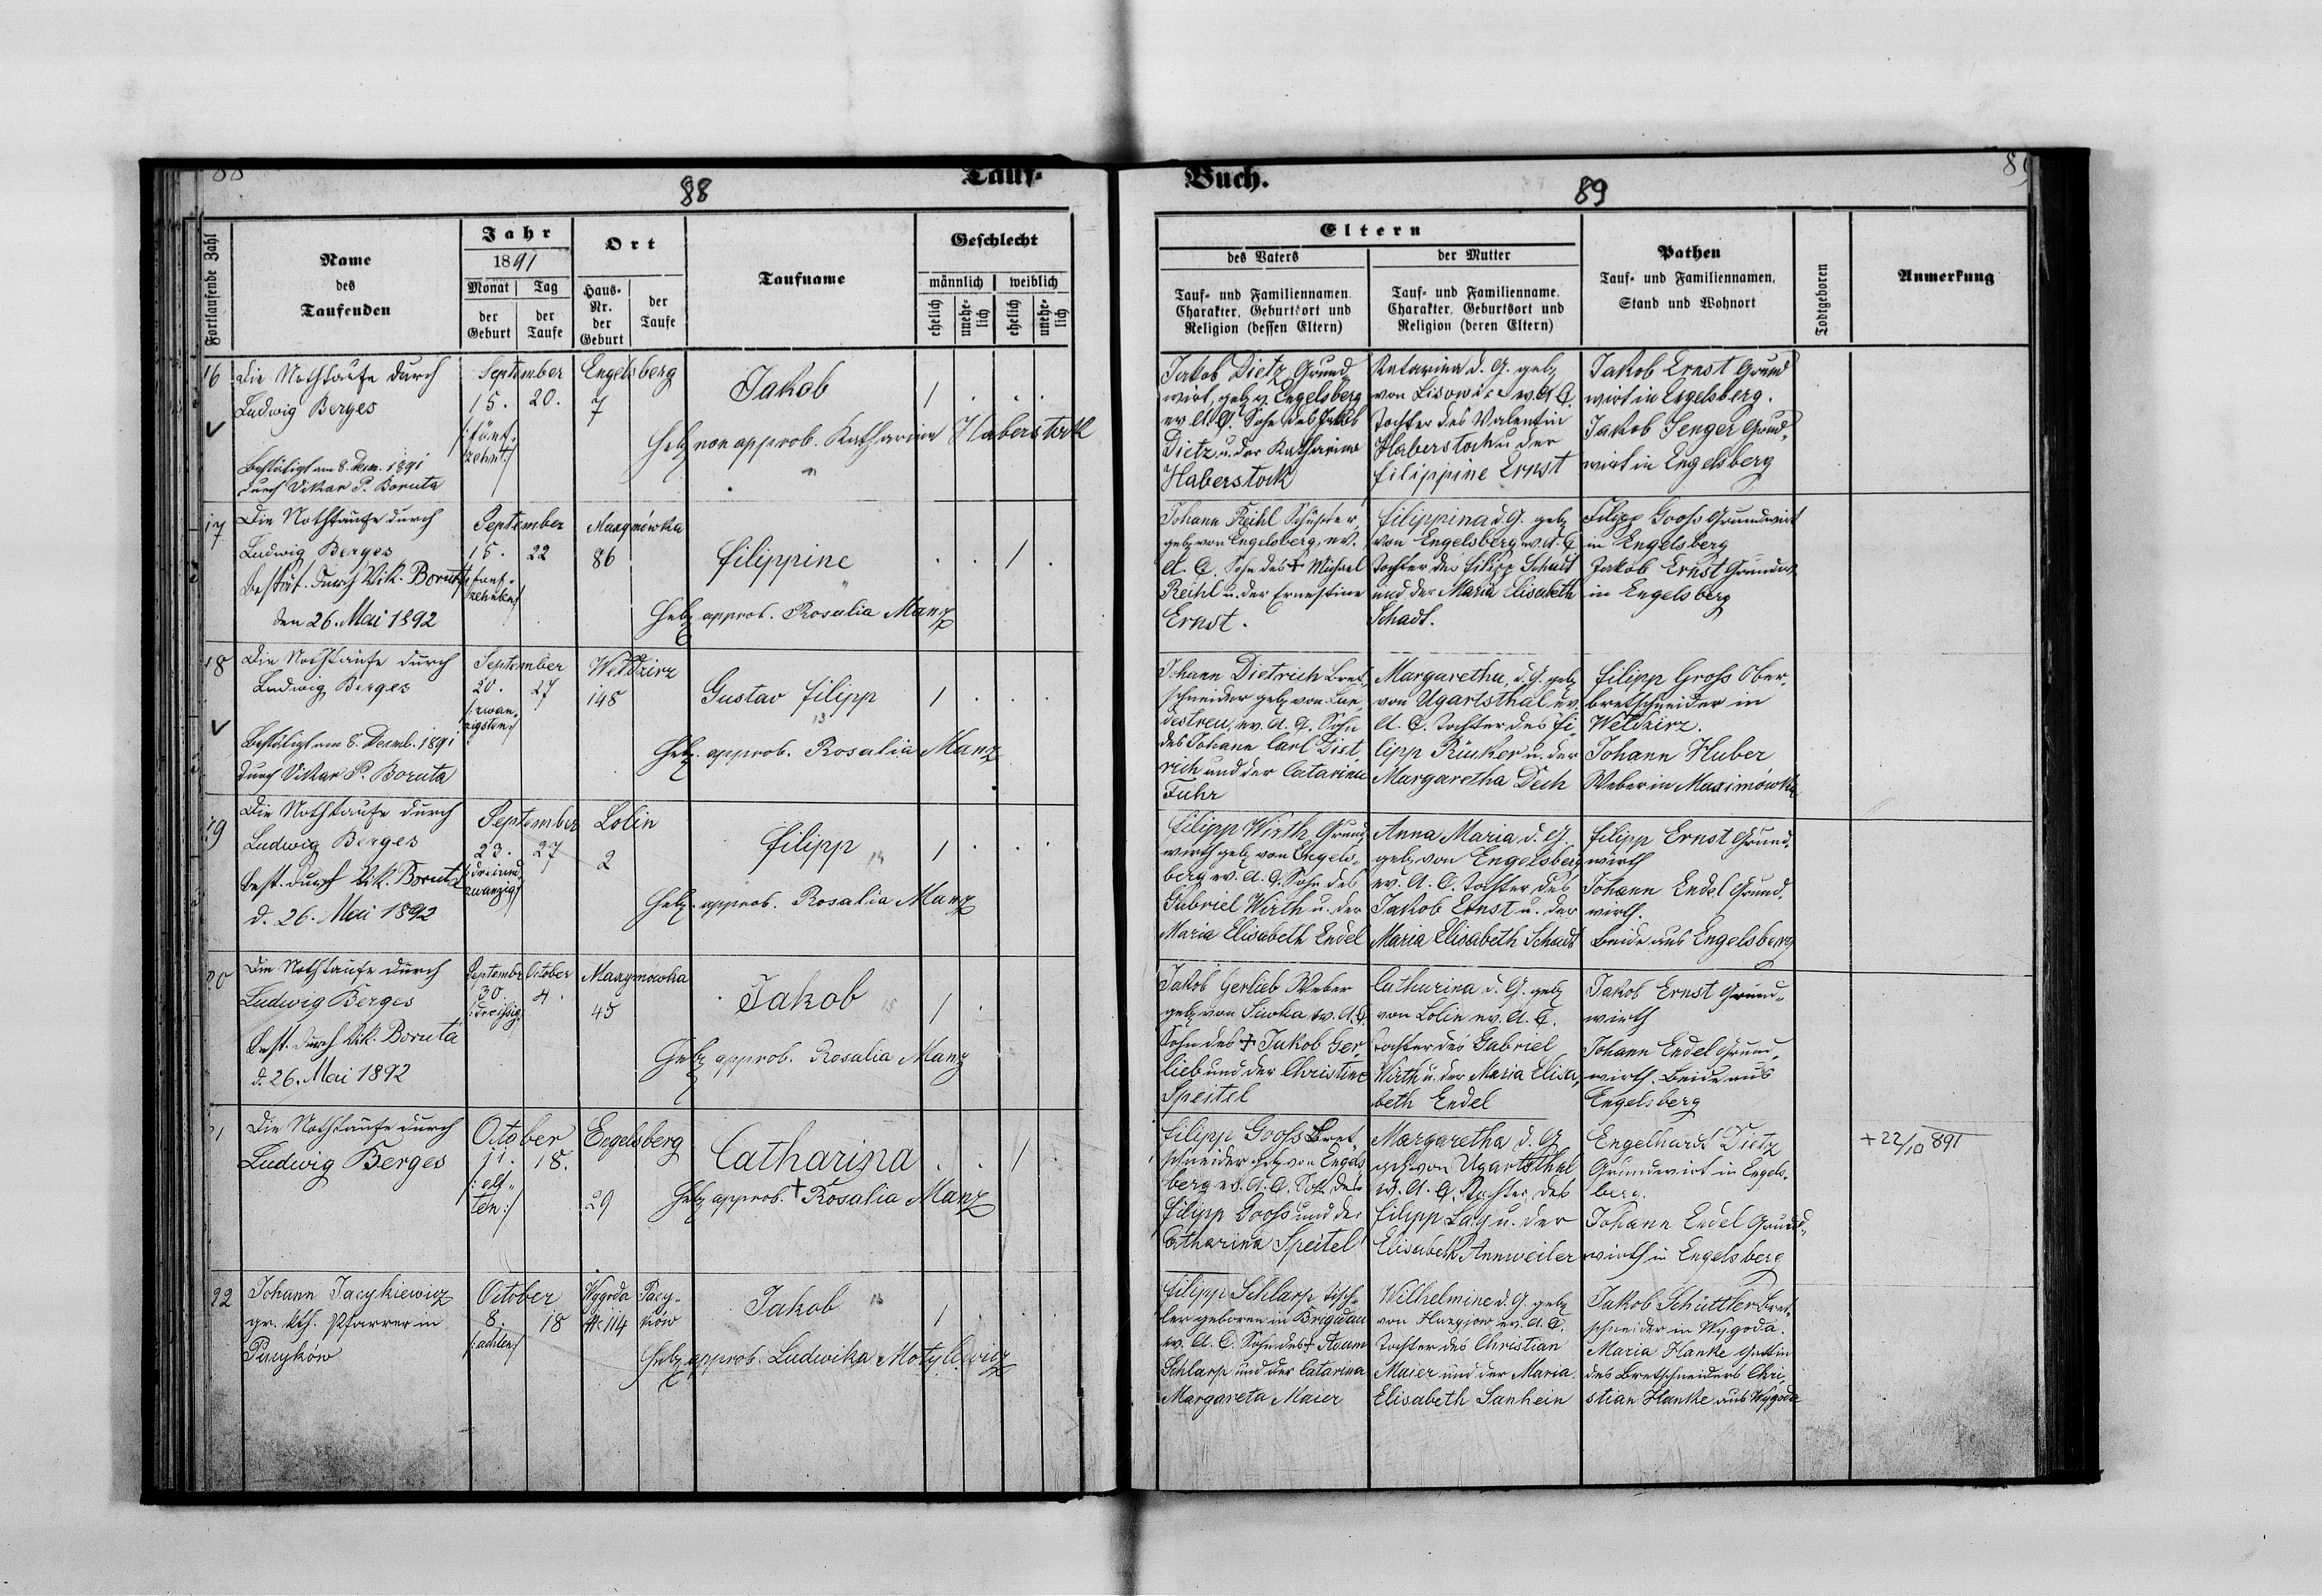 88
Tauf-
88
Fortlaufende Zahl
Name
des
Taufenden
Jahr
1891
Monat
Tag
der
Geburt
der
Taufe
Ort
Haus-
Nr.
der
Geburt
der
Taufe
Taufname
Geschlecht
männlich
weiblich
ehelich
unehe-
lich
ehelich
unehe-
lich
16
Die Nothtaufe durch
Ludwig Berges
Bestätigt am 8. Dezm. 1891
durch Vikar P. Boruta
September
15.
20.
/:fünf-
zehnt:/
Engelsberg
7
Jakob
1
Heb. non approb. Katharina Haberstock
17
Die Nothtaufe durch
Ludwig Berges
Bestät. durch Vik. Boruta
den 26. Mai 1892
September
15.
22
/:fünf-
zehnten:/
Maxymówka
86
Filippine
1
Heb. approb. Rosalia Manz
18
Die Nothtaufe durch
Ludwig Berges
Bestätigt am 8. Dezmb. 1891
durch Vikar P. Boruta
September
20.
27
/:zwan-
zigsten:/
Weldzirz
148
Gustav Filipp
13
1
Heb. approb. Rosalia Manz
19
Die Nothtaufe durch
Ludwig Berges
best. durch Vik. Boruta
d. 26. Mai 1892
September
23.
27
/:dreiund
zwanzig:/
Lolin
2
Filipp
14
1
Heb. approb. Rosalia Manz
20
Die Nothtaufe durch
Ludwig Berges
best. durch Vik. Boruta
d. 26. Mai 1892
Septembr
October
30.
4.
/:dreißig
Maxymówka
45
Jakob
15
1
Heb. approb. Rosalia Manz
21
Die Nothtaufe durch
Ludwig Berges
October
11.
18.
/:elf-
ten:/
Engelsberg
29
Catharina
1
Heb. approb. † Rosalia Manz
22
Johann Jacykiewicz
gr. kth. Pfarrer in
Pacyków
October
8.
18
/:achten:/
Wygoda
114
Pacy-
ków
Jakob
1
Heb. approb. Ludwika Motylewicz
Buch.
89
89
Eltern
des Vaters
der Mutter
Tauf- und Familiennamen.
Charakter, Geburtsort und
Religion (dessen Eltern)
Tauf- und Familienname.
Charakter, Geburtsort und
Religion (deren Eltern)
Pathen
Tauf- und Familiennamen,
Stand und Wohnort
Todtgeboren
Anmerkung
Jakob Dietz Grund
wirt, geb. v. Engelsberg
ev. A. C. Sohn des Jakob
Dietz u. der Katharina
Haberstock
Katarina d. G. geb.
von Lisowic ev. A. C.
Tochter des Valentin
Haberstock u der
Filippine Ernst
Jakob Ernst Grund
wirt in Engelsberg.
Jakob Senger Grund-
wirt in Engelsberg
Johann Reihl Schuster
geb. von Engelsberg, ev.
A. C. Sohn des † Michael
Reihl u. der Ernestine
Ernst.
Filippina d. G. geb.
von Engelsberg ev. A. C
Tochter des Filipp Schadt
und der Maria Elisabeth
Schadt.
Filipp Gooß Grundwirt
in Engelsberg
Jakob Ernst Grundw.
in Engelsberg
Johann Dietrich Bret-
schneider geb. von Lan-
destreu, ev. A. C. Sohn
des Johann Carl Diet
rich und der Catarina
Fuhr
Margaretha, d. G. geb.
von Ugartsthal ev.
A. C. Tochter des Fi-
lipp Rinker u. der
Margaretha Dech
Filipp Groß Ober-
bretschneider in
Weldzirz.
Johann Huber
Weber in Maximówka
Filipp Wirth Grund
wirth geb. von Engels-
berg ev. A. C. Sohn des
Gabriel Wirth u. der
Maria Elisabeth Endel
Anna Maria d. G.
geb. von Engelsberg
ev. A. C. Tochter des
Jakob Ernst u. der
Maria Elisabeth Schadt
Filipp Ernst Grund-
wirth
Johann Endel Grund-
wirth.
Beide aus Engelsberg
Jakob Gerlieb Weber
geb. von Siwka ev. A. C.
Sohn des † Jakob Ger-
lieb und der Christine
Speitel
Catharina d. G. geb.
von Lolin ev. A. C.
Tochter des Gabriel
Wirth u. der Maria Elisa-
beth Endel
Jakob Ernst Grund-
wirth
Johann Endel Grund-
wirth. Beide aus
Engelsberg
Filipp Gooß Bret-
schneider geb. von Engels
berg ev. A. C. Sohn des
Filipp Gooß und der
Catharina Speitel
Margaretha d. G
geb. von Ugartsthal
ev. A. C. Tochter des
Filipp Lay u. der
Elisabeth Annweiler
Engelhardt Dietz
Grundwirt in Engels-
berg.
Johann Endel Grund-
wirth in Engelsberg
+ 22/10 891
Filipp Schlarp Tisch-
ler geboren in Brigidau
ev. A. C. Sohn des † Adam
Schlarp und der Catarina
Margareta Maier
Wilhelmine d. G. geb.
von ev. A. C.
Tochter des Christian
Maier und der Maria
Elisabeth Sanhein
Jakob Schüttler Bret-
schneider in Wygoda.
Maria Hanke Gattin
des Bretschneiders Chri-
stian Hanke aus Wygoda